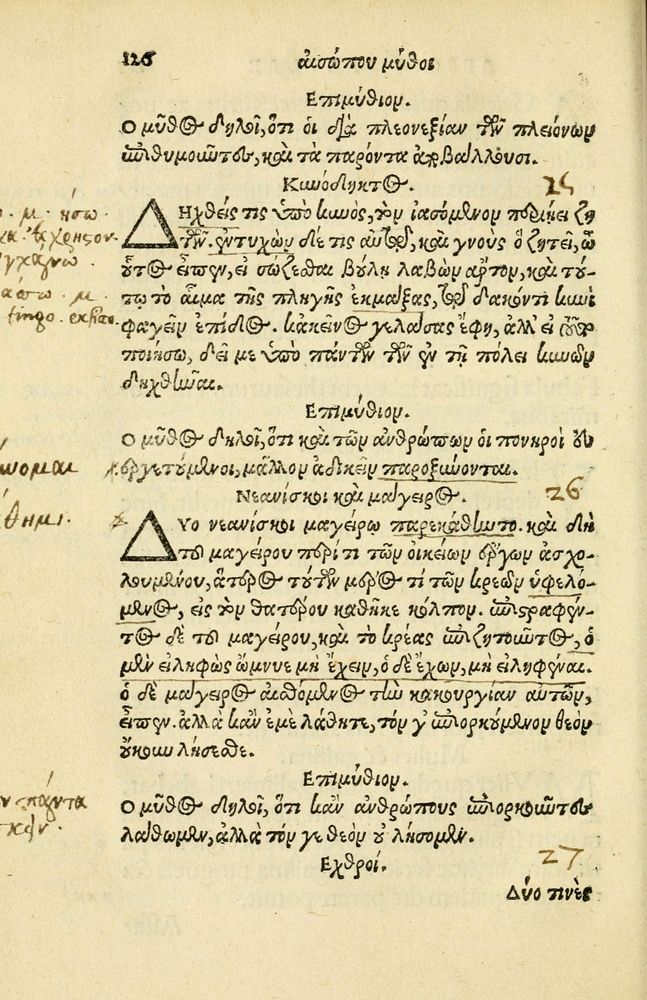 126 αἰσώπου μῦθοι
Επιμύθιον.
Ο μῦθος δηλοῖ, ὅτι οἱ διὰ πλεονεξίαν τῶν πλειόνων
ἐπιθυμοῦντες, καὶ τὰ παρόντα ἀποβάλλουσι.
Κυνόδηκτος. 25
ο. μ. ήσω.
ΔΗχθείς τις ὑπὸ κυνὸς, τὸν ἰασόμενον περιῄει ζη
τῶν. ἐντυχὼν δέ τις αὐτῷ, καὶ γνοὺς ὃ ζητεῖ, ὦ
οὗτος εἶπεν, εἰ σώζεσθαι βούλη λαβὼν ἄρτον, καὶ τού-
τω τὸ αἷμα τῆς πληγῆς ἐκμάξας, τῷ δακόντι κυνὶ
tingo.
φαγεῖν ἐπίδος. κἀκεῖνος γελάσας ἔφη, ἀλλ' εἰ τοῦτο
ποιήσω, δεῖ με ὑπὸ πάντων τῶν ἐν τῇ πόλει κυνῶν
δηχθῆναι.
Επιμύθιον.
Ο μῦθος δηλοῖ, ὅτι καὶ τῶν ἀνθρώπων οἱ πονηροὶ εὐ
εργετούμενοι, μᾶλλον ἀδικεῖν παροξύνονται.
Νεανίσκοι καὶ μάγειρος. 26
ΔΥο νεανίσκοι μαγείρῳ παρεκάθηντο. καὶ δὴ
τοῦ μαγείρου περί τι τῶν οἰκείων ἔργων ἀσχο-
λουμένου, ἅτερος τούτων μέρος τὶ τῶν κρεῶν ὑφελό-
μενος, εἰς τὸν θατέρου καθῆκε κόλπον. ἐπιστραφέν-
τος δὲ τοῦ μαγείρου, καὶ τὸ κρέας ἐπιζητοῦντος, ὁ
μὲν εἰληφὼς ὤμνυε μὴ ἔχειν, ὁ δὲ ἔχων, μὴ εἰληφέναι.
ὁ δὲ μάγειρος αἰσθόμενος τὴν κακουργίαν αὐτῶν,
εἶπεν. ἀλλὰ κἂν ἐμὲ λάθητε, τόν γ' ἐπιορκούμενον θεὸν
οὔκουν λήσεσθε.
Επιμύθιον.
Ο μῦθος δηλοῖ, ὅτι κἂν ἀνθρώπους ἐπιορκοῦντες
λάθωμεν, ἀλλὰ τόν γε θεὸν οὐ λήσομεν.
Εχθροί. 27
Δύο τινὲς